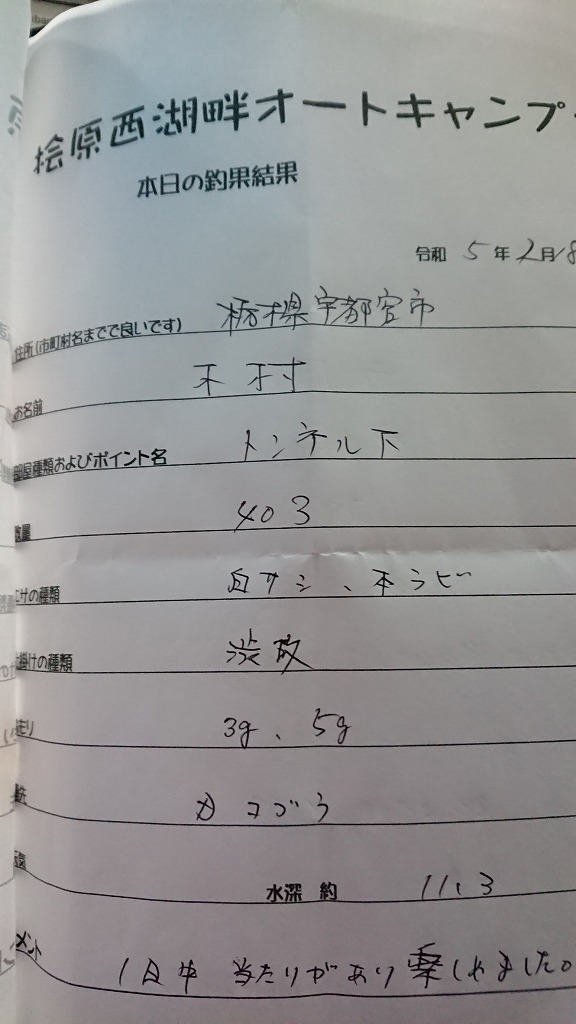 桧原西湖畔オートキャンプ
本日の釣果結果
令和 5年2月18
住所(市町村名までで良いです) 栃木県宇都宮市
お名前 木村
部屋種類およびポイント名 トンネル下
数量 403
エサの種類 白サシ、本ラビ
仕掛けの種類 渋攻
3g、5g
水深 約 11.3
メント 1日中 当たりがあり楽しめました。